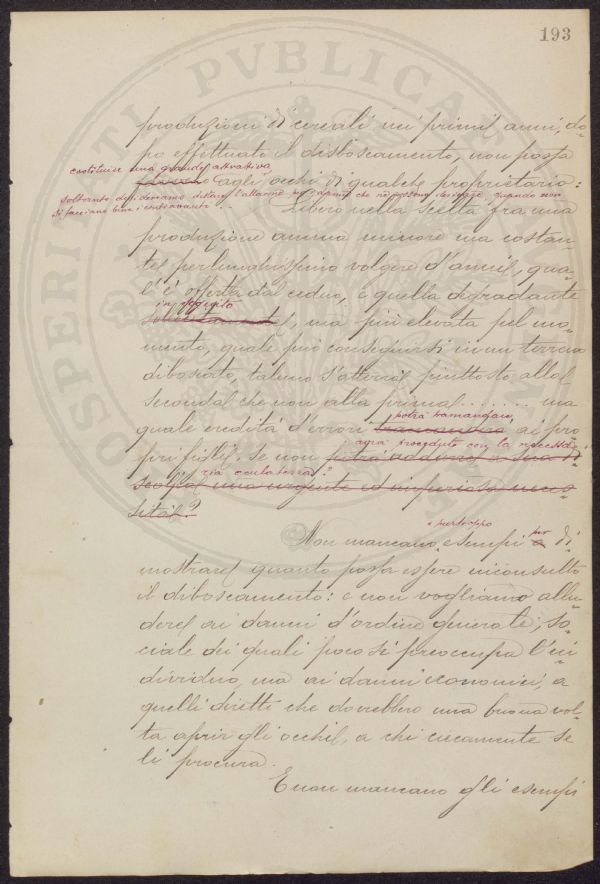 193
PROSPERITATI PVBLICAE
produzioni di cereali nei primi anni, do-
po effettuato il disboscamento, non possa
costituire una grande attrattiva
agli occhi di qualche proprietario:
soltanto desideriamo dettare l'allarme che
si facciano bene i conti avanti
Libero nella scelta fra una
produzione annua minore ma costan-
te per lunghissimo volgere d'anni, qua-
l'è offerta dal ceduo, e quella degradante
in seguito
, ma più elevata pel mo-
mento, quale può conseguirsi in un terreno
diboscato, taluno s'atterrà piuttosto alla
seconda che non alla prima ....... ma
potrà tramandare
quale eredità d'errori ai pro-
avrà proceduto con la necessa-
pri figli, se non potrà addurre a sua di
ria oculatezza?
scolpa una urgente ed imperiosa neces-
sità?
purtroppo
Non mancano esempi per di-
mostrare quanto possa essere inconsulto
il diboscamento: e non vogliamo allu-
dere ai danni d'ordine generale, so-
ciale dei quali poco si preoccupa l'in
dividuo, ma ai danni economici, a
quelli diretti che dovrebbero una buona vol-
ta aprir gli occhi, a chi ciecamente se
li procura.
E non mancano gli esempi